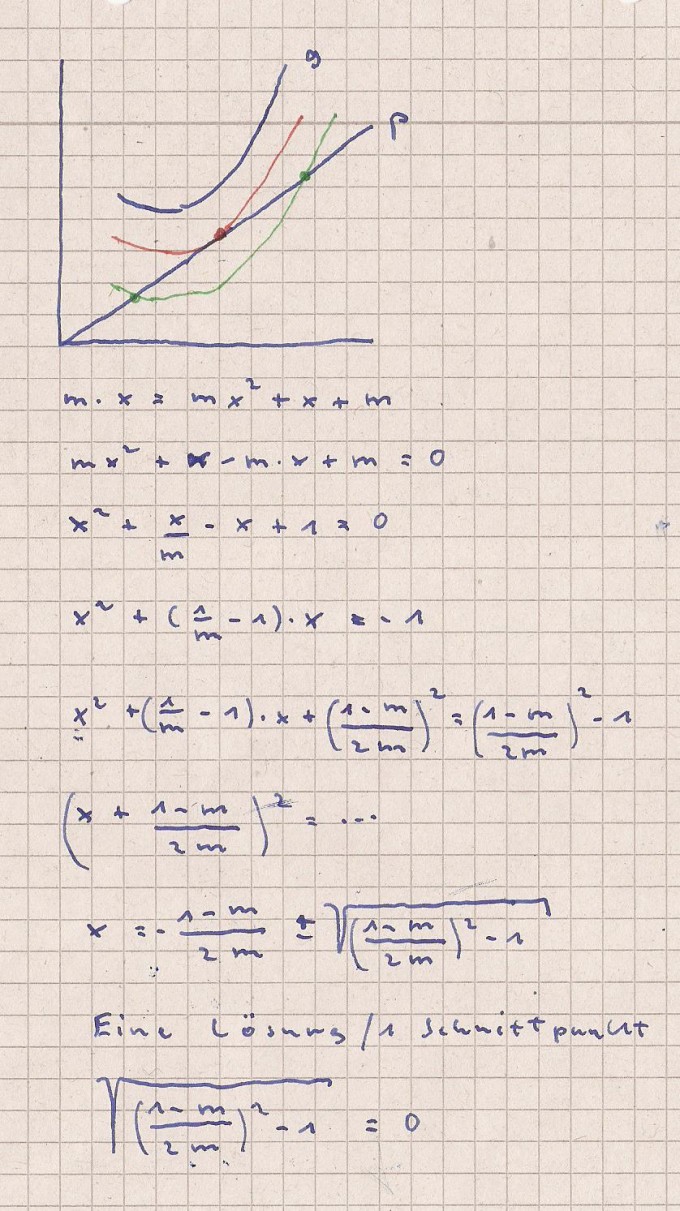 g
p
m · x = mx² + x + m
mx² + x - m · x + m = 0
x² + x/m - x + 1 = 0
x² + (1/m - 1) · x = - 1
x² + (1/m - 1) · x + ((1 - m)/(2 m))² = ((1 - m)/(2m))² - 1
(x + (1 - m)/(2 m))² = ...
x = - (1 - m)/(2 m) ± √(((1 - m)/(2 m))² - 1)
Eine Lösung / 1 Schnittpunkt
√(((1 - m)/(2 m))² - 1) = 0